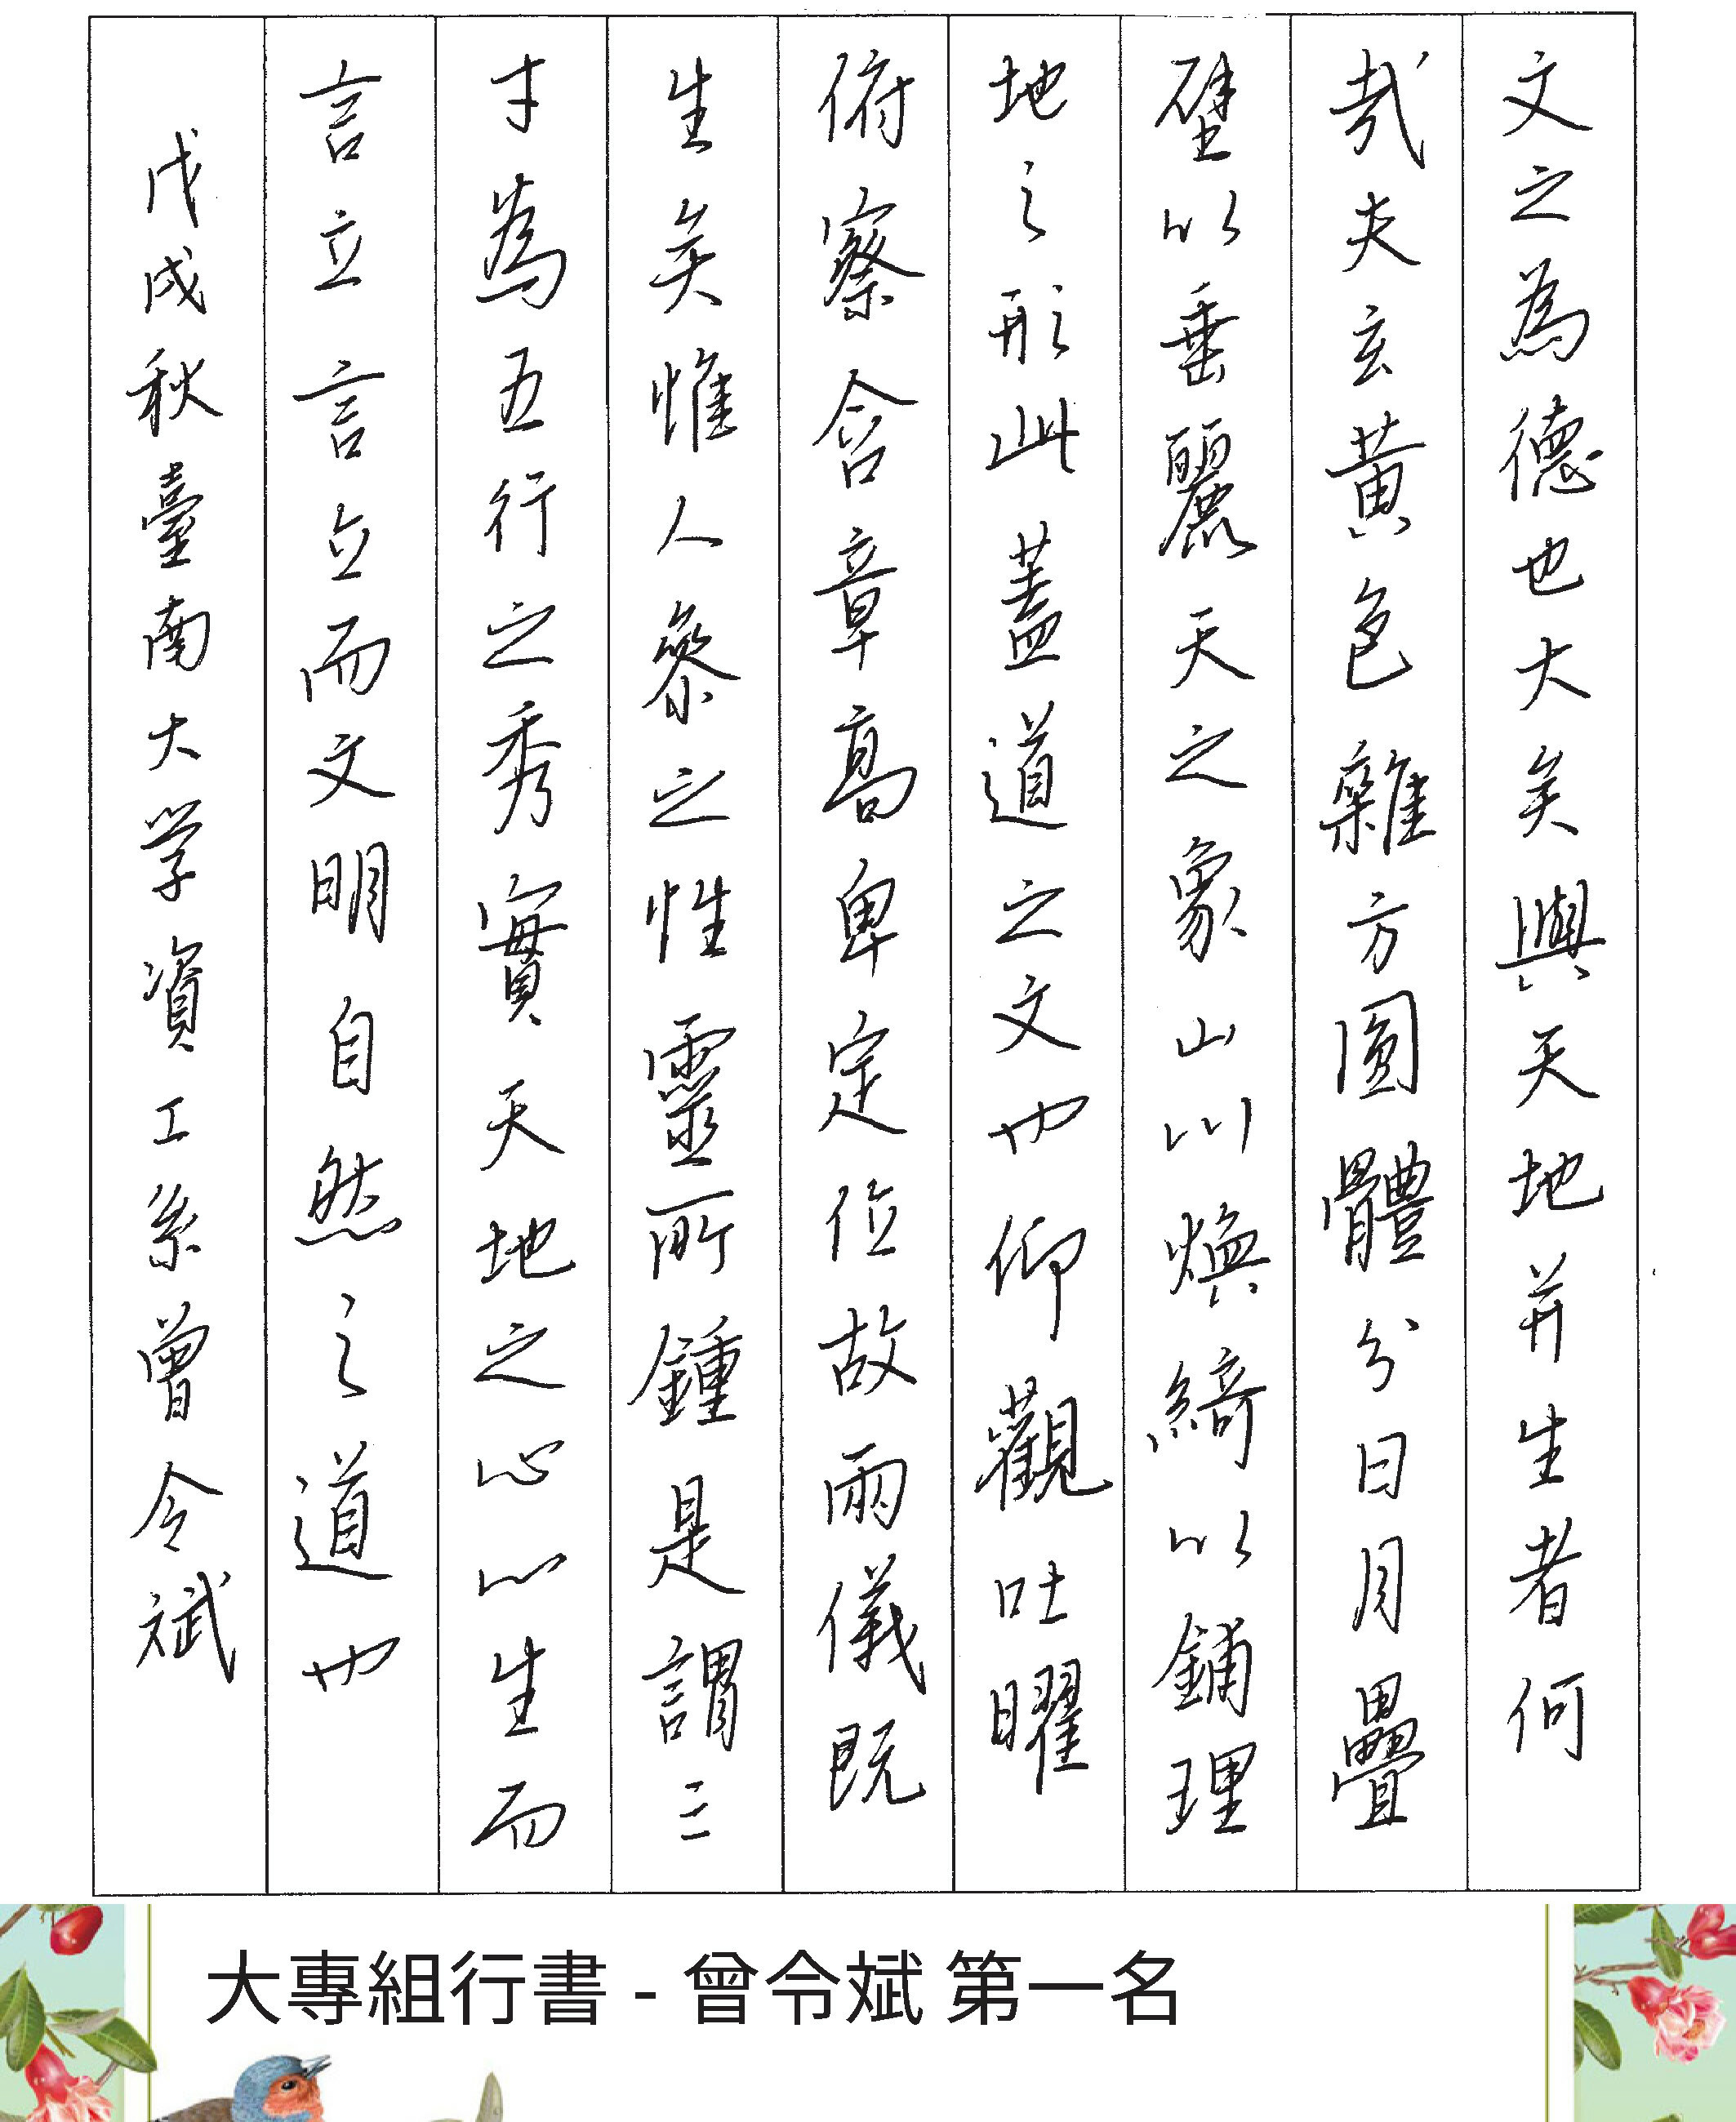 文之為德也大矣與天地并生者何
哉夫玄黃色雜方圓體分日月疊
璧以垂麗天之象山川煥綺以鋪理
地之形此蓋道之文也仰觀吐曜
俯察含章高卑定位故兩儀既
生矣惟人參之性靈所鍾是謂三
才為五行之秀實天地之心心生而
言立言立而文明自然之道也
戊戌秋臺南大学資工系曾令斌
大專組行書 - 曾令斌 第一名